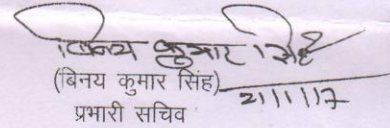 बिनय कुमार सिंह
(बिनय कुमार सिंह)
21/1/17
प्रभारी सचिव